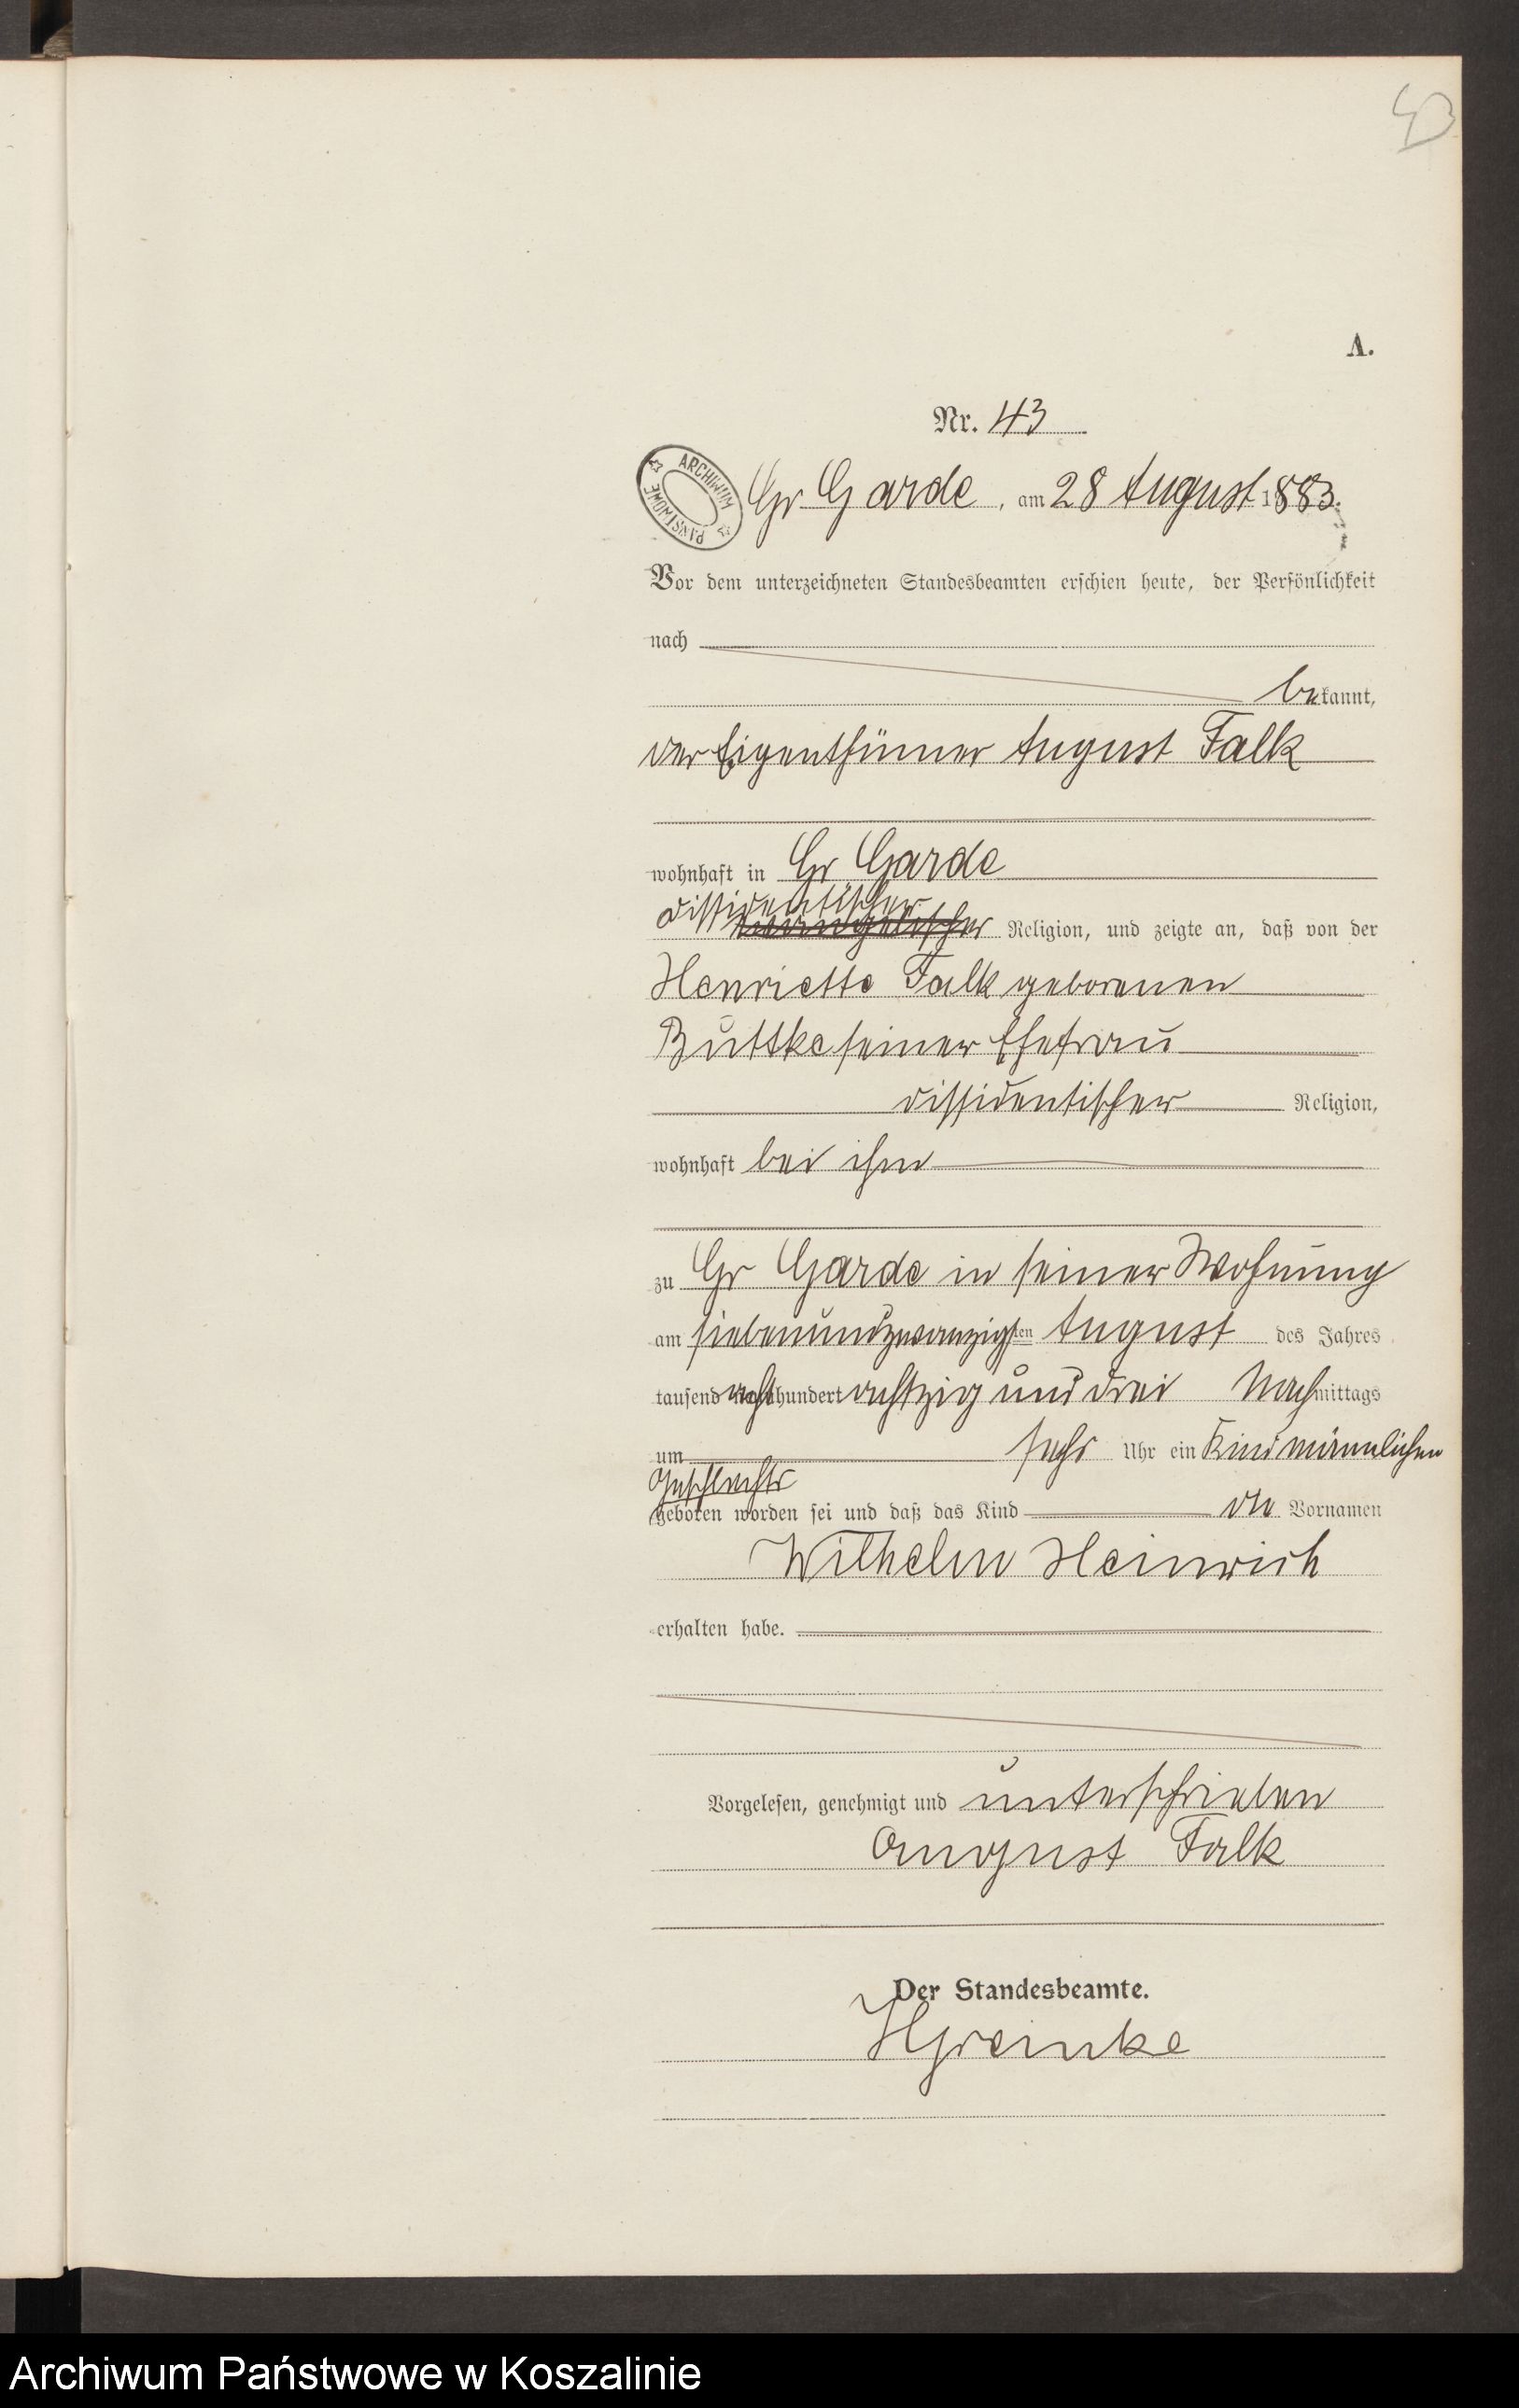 43
A.
Nr. 43
ARCHIWUM PAŃSTWOWE
Gr. Garde, am 28 August 1883.
Vor dem unterzeichneten Standesbeamten erschien heute, der Persönlichkeit
nach
bekannt,
der Eigenthümer August Falk
wohnhaft in Gr Garde
dissidentischer
evangelischer Religion, und zeigte an, daß von der
Henriette Falk geborenen
Buttke seiner Ehefrau
dissidentischer Religion,
wohnhaft bei ihm
zu Gr Garde in seiner Wohnung
am siebenundzwanzigsten August des Jahres
tausend achthundert achtzig und drei Nachmittags
um sechs Uhr ein Kind männlichen
Geschlechts
geboren worden sei und daß das Kind die Vornamen
Wilhelm Heinrich
erhalten habe.
Vorgelesen, genehmigt und unterschrieben
August Falk
Der Standesbeamte.
HGreinke
Archiwum Państwowe w Koszalinie